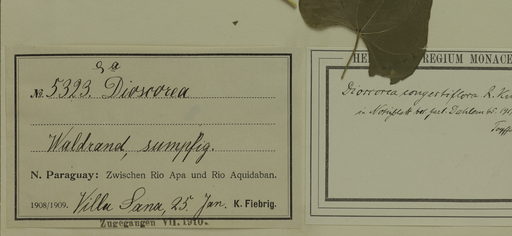 № 5323. Dioscorea
Waldrand, sumpfig.
N. Paraguay: Zwischen Rio Apa und Rio Aquidaban.
1908/1909. Villa Sana, 25. Jan. K. Fiebrig.
Zugegangen VII. 1910.
REGIUM MONACE
Dioscorea congestiflora R. Kn